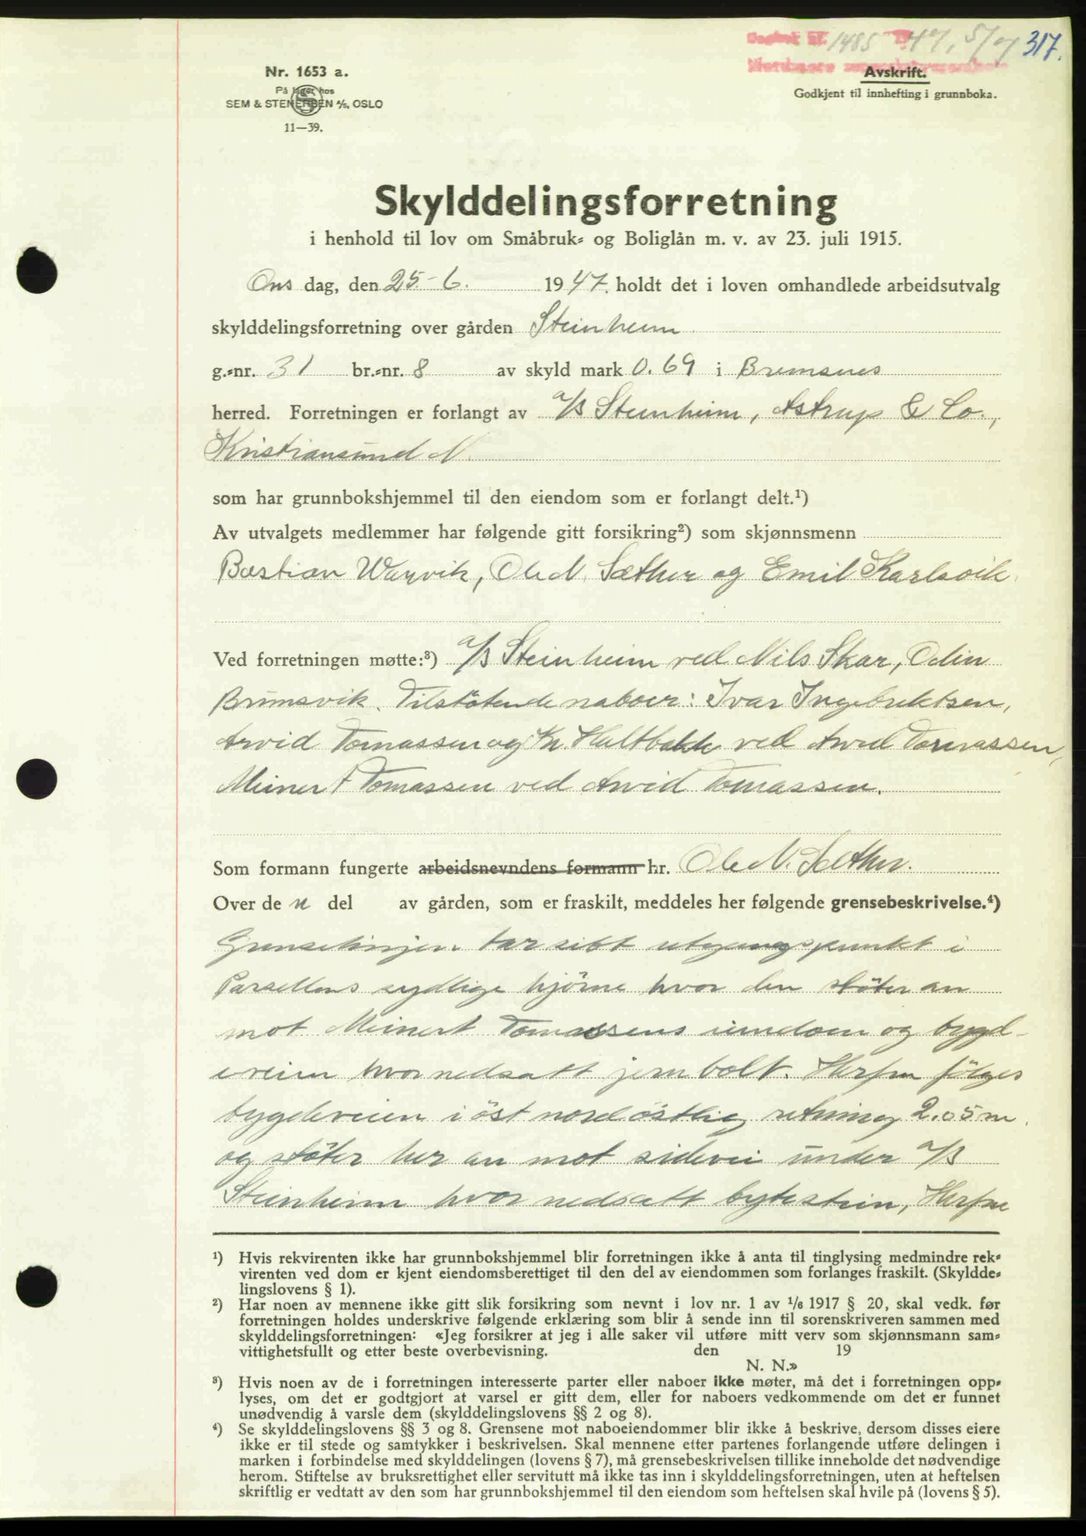 Dagbok nr. 1485 1947, 5/7 317.
Nordmøre sorenskriverembete
Nr. 1653 a.
På lager hos
SEM & STENERSEN A/S, OSLO
11—39.
Avskrift.
Godkjent til innhefting i grunnboka.
Skylddelingsforretning
i henhold til lov om Småbruk- og Boliglån m. v. av 23. juli 1915.
Ons dag, den 25-6. 1947. holdt det i loven omhandlede arbeidsutvalg
skylddelingsforretning over gården Steinheim
g.-nr. 31 br.-nr. 8 av skyld mark 0.69 i Bremsnes
herred. Forretningen er forlangt av a/s Steinheim, Astrup & Co.,
Kristiansund N.
som har grunnbokshjemmel til den eiendom som er forlangt delt.¹)
Av utvalgets medlemmer har følgende gitt forsikring²) som skjønnsmenn
Bastian Warvik, Ole N. Sæther og Emil Karlsvik
Ved forretningen møtte:³) a/s Steinheim ved Nils Skar, Odin
Brunsvik. Tilstötende naboer: Ivar Ingebriktsen,
Arvid Tomassen og Kr. Haltbakk ved Arvid Tomassen,
Meinert Tomassen ved Arvid Tomassen.
Som formann fungerte arbeidsnevndens formann hr. Ole N. Sæther.
Over de n del av gården, som er fraskilt, meddeles her følgende grensebeskrivelse.⁴)
Grenselinjen tar sitt utgangspunkt i
Parsellens sydlige hjörne hvor den stöter an
mot Meinert Tomassens eiendom og bygd-
eveien hvor nedsatt jernbolt. Herfra fölges
bygdeveien i öst nordöstlig retning 2.05 m.
og stöter her an mot sidevei under a/s
Steinheim hvor nedsatt bytestein, Herfra
¹) Hvis rekvirenten ikke har grunnbokshjemmel blir forretningen ikke å anta til tinglysing medmindre rek-
virenten ved dom er kjent eiendomsberettiget til den del av eiendommen som forlanges fraskilt. (Skyldde-
lingslovens § 1).
²) Har noen av mennene ikke gitt slik forsikring som nevnt i lov nr. 1 av 1/6 1917 § 20, skal vedk. før
forretningen holdes underskrive følgende erklæring som blir å sende inn til sorenskriveren sammen med
skylddelingsforretningen: «Jeg forsikrer at jeg i alle saker vil utføre mitt verv som skjønnsmann sam-
vittighetsfullt og etter beste overbevisning. den 19
N. N.»
³) Hvis noen av de i forretningen interesserte parter eller naboer ikke møter, må det i forretningen opp-
lyses, om det er godtgjort at varsel er gitt dem, eller for naboers vedkommende om det er funnet
unødvendig å varsle dem (skylddelingslovens §§ 2 og 8).
⁴) Se skylddelingslovens §§ 3 og 8. Grensene mot naboeiendommer blir ikke å beskrive, dersom disses eiere
ikke er til stede og samtykker i beskrivelsen. Skal mennene etter partenes forlangende utføre delingen i
marken i forbindelse med skylddelingen (lovens § 7), må grensebeskrivelsen tillike inneholde det nødvendige
herom. Stiftelse av bruksrettighet eller servitutt må ikke tas inn i skylddelingsforretningen, uten at heftelsen
skriftlig er vedtatt av den som har grunnbokshjemmel til den eiendom som heftelsen skal hvile på (lovens § 5).